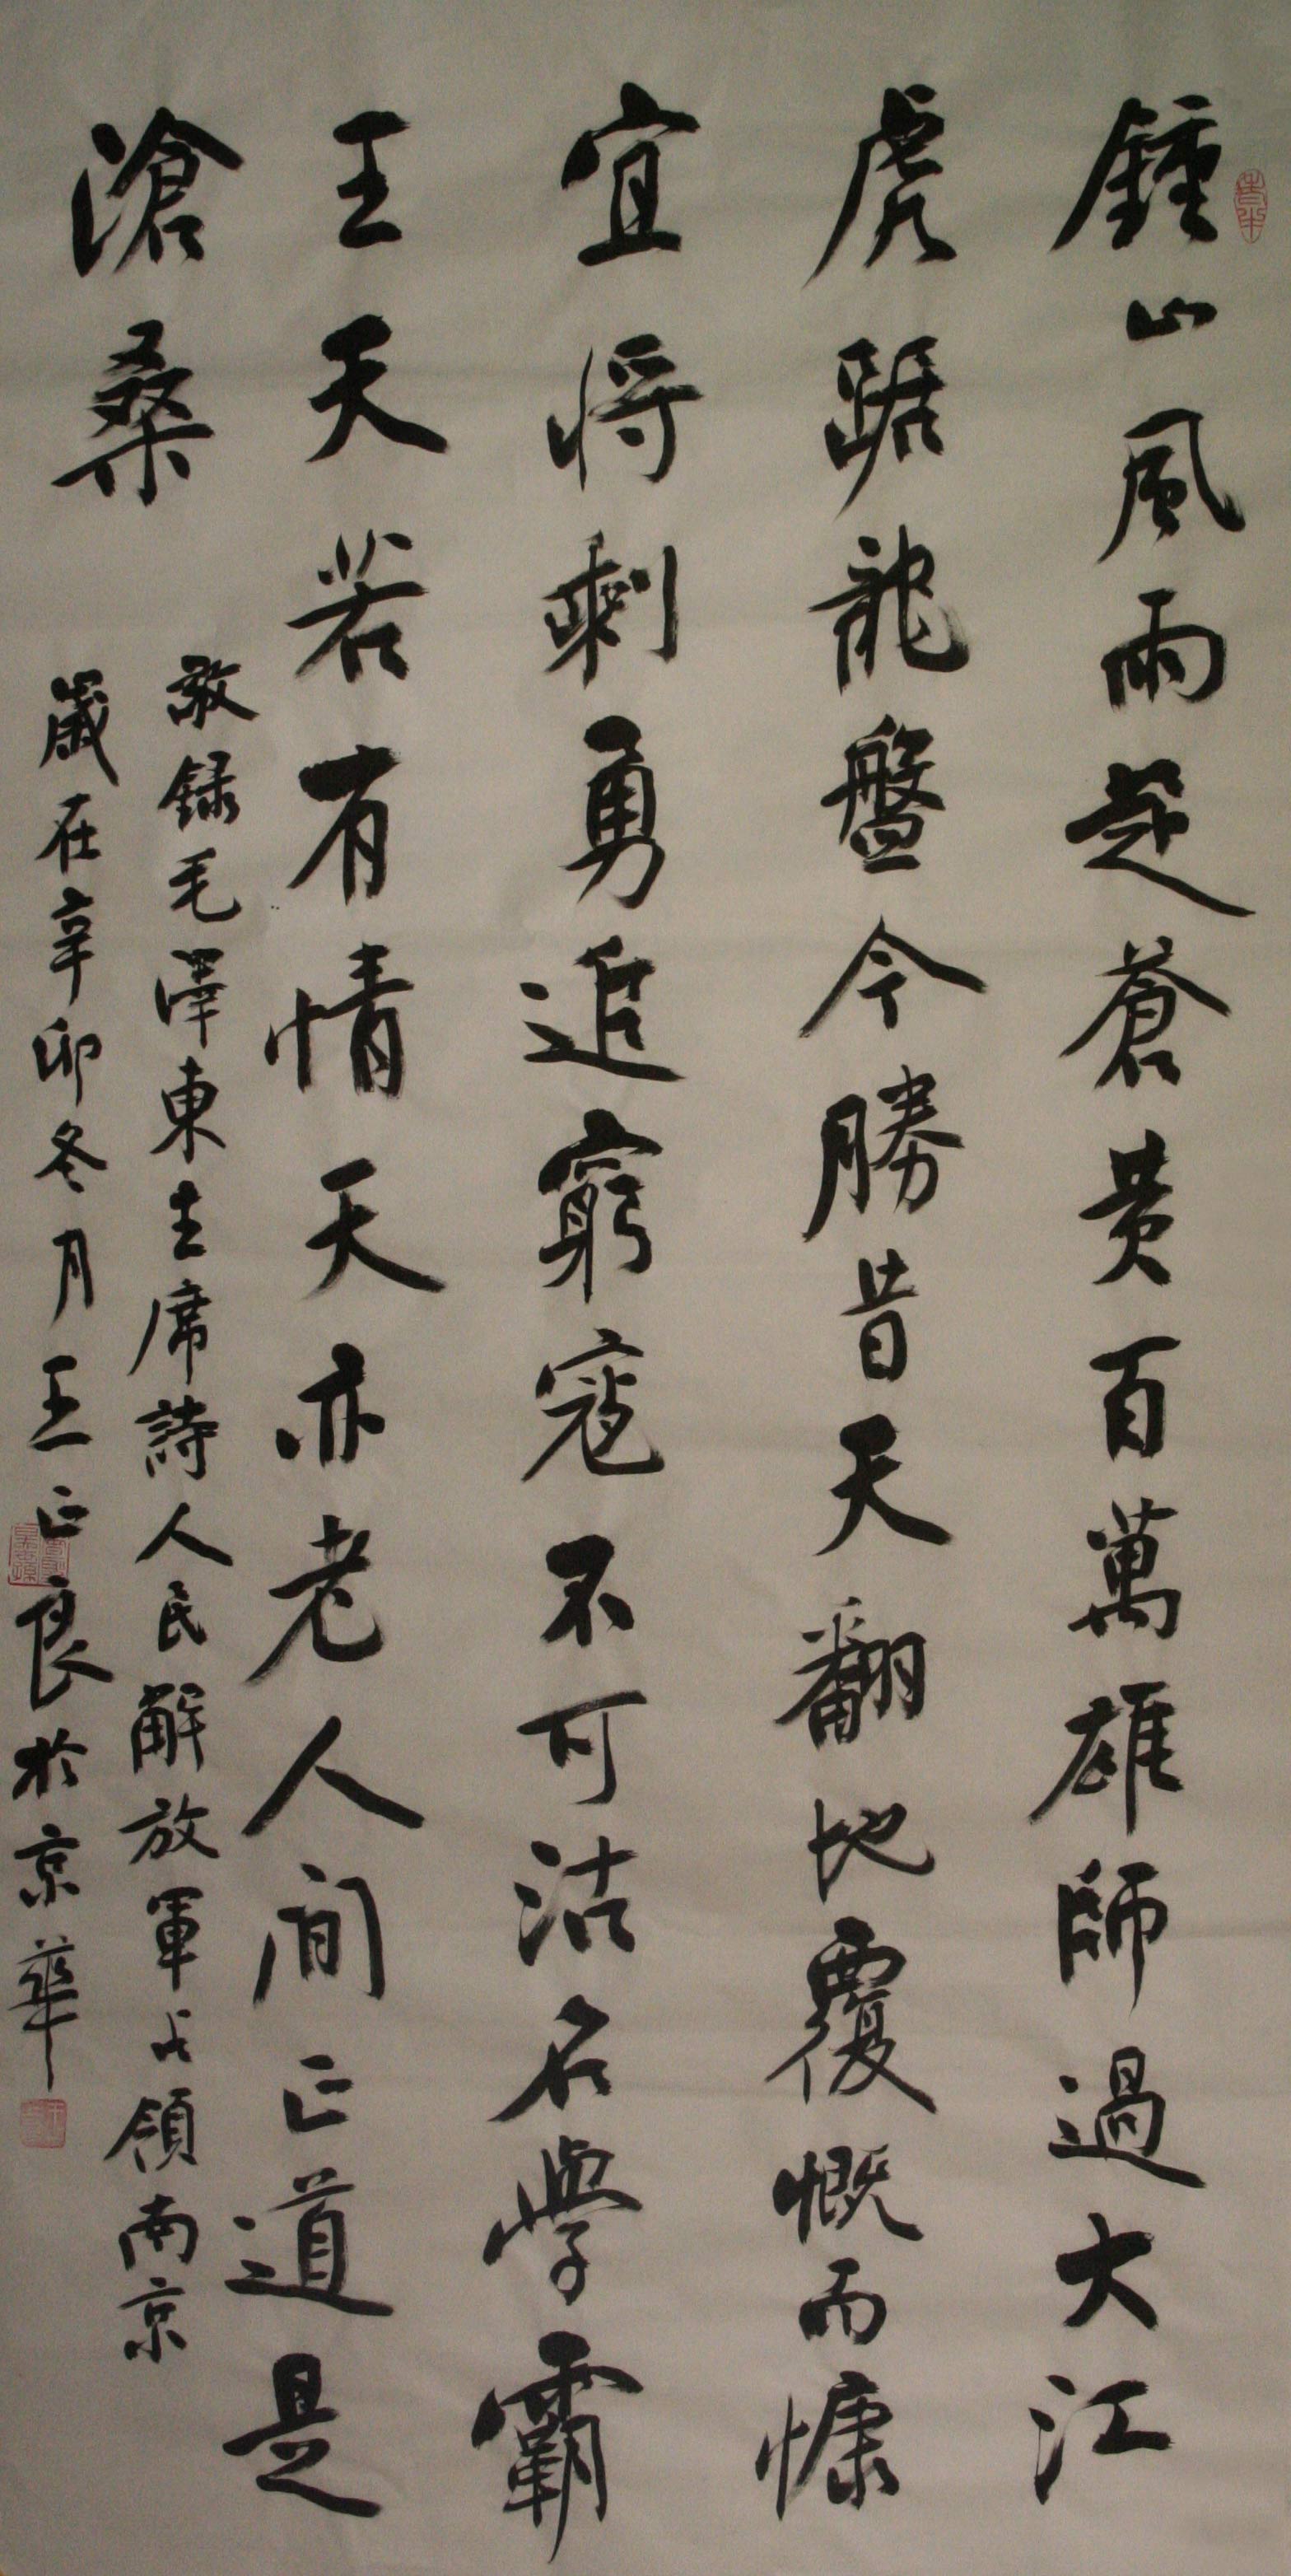 鍾山風雨起蒼黄百萬雄師過大江
虎踞龍盤今勝昔天翻地覆慨而慷
宜將剩勇追窮寇不可沽名學霸
王天若有情天亦老人间正道是
滄桑
敬録毛澤東主席詩人民解放軍占領南京
歲在辛卯冬月王正良於京華